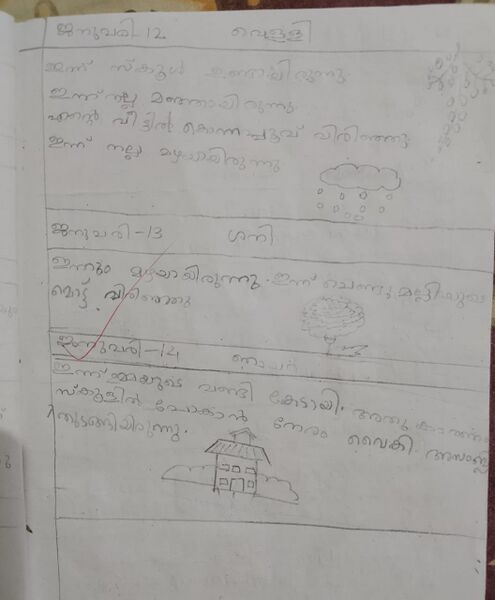 ജനുവരി-12 വെള്ളി
ഇന്ന് സ്കൂൾ ഉണ്ടായിരുന്നു
ഇന്ന് നല്ല മഞ്ഞായിരുന്നു
എന്റെ വീട്ടിൽ കൊന്നപ്പൂവ് വിരിഞ്ഞു
ഇന്ന് നല്ല മഴയായിരുന്നു
ജനുവരി-13 ശനി
ഇന്നും മഴയായിരുന്നു. ഇന്ന് ചെണ്ടുമല്ലിയുടെ
മൊട്ട് വിരിഞ്ഞു
ജനുവരി-14 ഞായർ
ഇന്ന് വണ്ടി കേടായി. അതു കാരണം
സ്കൂളിൽ പോകാൻ നേരം വൈകി. അസംബ്ലി
തുടങ്ങിയിരുന്നു.